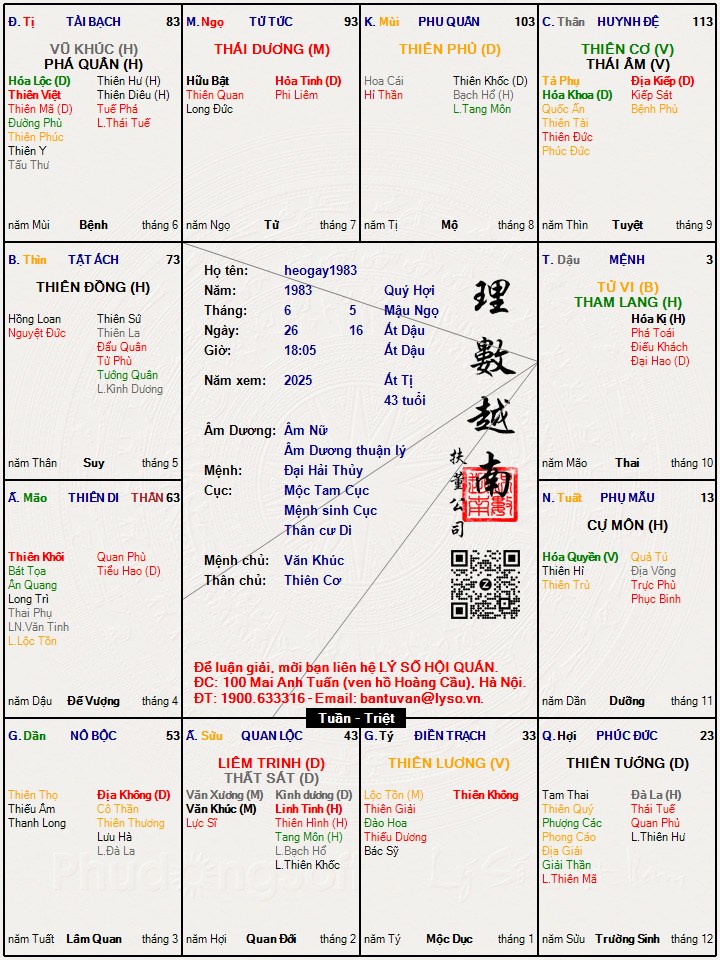 Đ. Tị TÀI BẠCH 83
VŨ KHÚC (H)
PHÁ QUÂN (H)
Hóa Lộc (D) Thiên Hư (H)
Thiên Việt Thiên Diêu (H)
Thiên Mã (D) Tuế Phá
Đường Phù L.Thái Tuế
Thiên Phúc
Thiên Y
Tấu Thư
năm Mùi Bệnh tháng 6
M. Ngọ TỬ TỨC 93
THÁI DƯƠNG (M)
Hữu Bật Hỏa Tinh (D)
Thiên Quan Phi Liêm
Long Đức
năm Ngọ Tử tháng 7
K. Mùi PHU QUÂN 103
THIÊN PHỦ (D)
Hoa Cái Thiên Khốc (D)
Hỉ Thần Bạch Hổ (H)
L.Tang Môn
năm Tị Mộ tháng 8
C. Thân HUYNH ĐỆ 113
THIÊN CƠ (V)
THÁI ÂM (V)
Tả Phụ Địa Kiếp (D)
Hóa Khoa (D) Kiếp Sát
Quốc Ấn Bệnh Phù
Thiên Tài
Thiên Đức
Phúc Đức
năm Thìn Tuyệt tháng 9
B. Thìn TẬT ÁCH 73
THIÊN ĐỒNG (H)
Hồng Loan Thiên Sứ
Nguyệt Đức Thiên La
Đẩu Quân
Tử Phù
Tướng Quân
L.Kình Dương
năm Thân Suy tháng 5
Họ tên: heogay1983
Năm: 1983 Quý Hợi
Tháng: 6 5 Mậu Ngọ
Ngày: 26 16 Ất Dậu
Giờ: 18:05 Ất Dậu
Năm xem: 2025 Ất Tị
43 tuổi
Âm Dương: Âm Nữ
Âm Dương thuận lý
Mệnh: Đại Hải Thủy
Cục: Mộc Tam Cục
Mệnh sinh Cục
Thân cư Di
Mệnh chủ: Văn Khúc
Thân chủ: Thiên Cơ
理數越南
扶董公司
Để luận giải, mời bạn liên hệ LÝ SỐ HỘI QUÁN.
ĐC: 100 Mai Anh Tuấn (ven hồ Hoàng Cầu), Hà Nội.
ĐT: 1900.633316 - Email: bantuvan@lyso.vn.
Tuần - Triệt
T. Dậu MỆNH 3
TỬ VI (B)
THAM LANG (H)
Hóa Kị (H)
Phá Toái
Điếu Khách
Đại Hao (D)
năm Mão Thai tháng 10
Ấ. Mão THIÊN DI THÂN 63
Thiên Khôi Quan Phù
Bát Tọa Tiểu Hao (D)
Ân Quang
Long Trì
Thai Phụ
LN.Văn Tinh
L.Lộc Tồn
năm Dậu Đế Vượng tháng 4
N. Tuất PHỤ MẪU 13
CỰ MÔN (H)
Hóa Quyền (V) Quả Tú
Thiên Hỉ Địa Võng
Thiên Trù Trực Phù
Phục Binh
năm Dần Dưỡng tháng 11
G. Dần NÔ BỘC 53
Thiên Thọ Địa Không (D)
Thiếu Âm Cô Thần
Thanh Long Thiên Thương
Lưu Hà
L.Đà La
năm Tuất Lâm Quan tháng 3
Ấ. Sửu QUAN LỘC 43
LIÊM TRINH (D)
THẤT SÁT (D)
Văn Xương (M) Kình dương (D)
Văn Khúc (M) Linh Tinh (H)
Lực Sĩ Thiên Hình (H)
Tang Môn (H)
L.Bạch Hổ
L.Thiên Khốc
năm Hợi Quan Đới tháng 2
G. Tý ĐIỀN TRẠCH 33
THIÊN LƯƠNG (V)
Lộc Tồn (M) Thiên Không
Thiên Giải
Đào Hoa
Thiếu Dương
Bác Sỹ
năm Tý Mộc Dục tháng 1
Q. Hợi PHÚC ĐỨC 23
THIÊN TƯỚNG (D)
Tam Thai Đà La (H)
Thiên Quý Thái Tuế
Phượng Các Quan Phủ
Phong Cáo L.Thiên Hư
Địa Giải
Giải Thần
L.Thiên Mã
năm Sửu Trường Sinh tháng 12